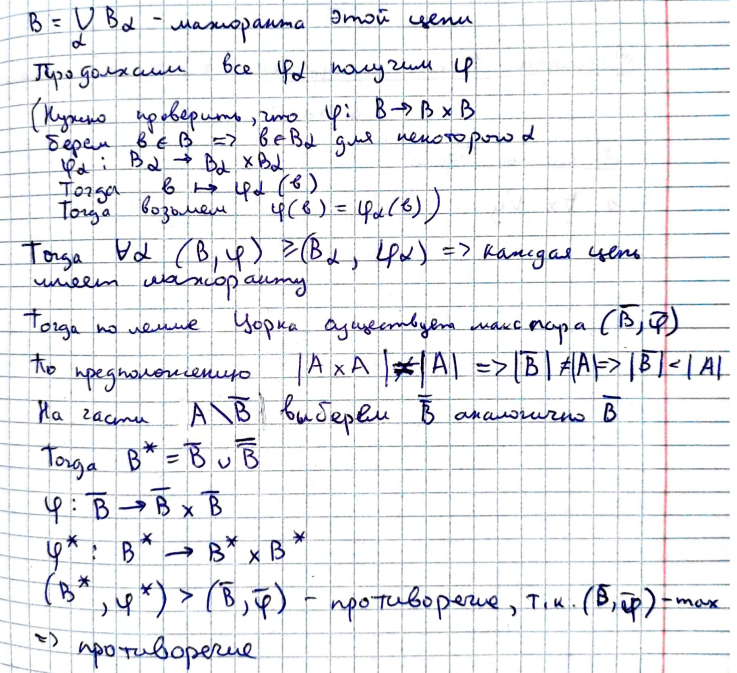 B = ⋃ Bα - мажоранта этой цепи
α
Продолжим все φα получим φ
(Нужно проверить, что φ: B → B × B
берем в ∈ B => в ∈ Bα для некоторого α
φα : Bα → Bα × Bα
Тогда в ↦ φα (в)
Тогда возьмем φ(в) = φα(в))
Тогда ∀α (B, φ) ≥ (Bα, φα) => каждая цепь
имеет мажоранту
Тогда по лемме Цорна существует макс пара (B̅, φ̅)
По предположению |A × A| ≠ |A| => |B̅| ≠ |A| => |B̅| < |A|
На части A \ B̅ выберем B̿ аналогично B̅
Тогда B* = B̅ ∪ B̿
φ : B̅ → B̅ × B̅
φ* : B* → B* × B*
(B*, φ*) > (B̅, φ̅) - противоречие, т.к. (B̅, φ̅) - max
=> противоречие